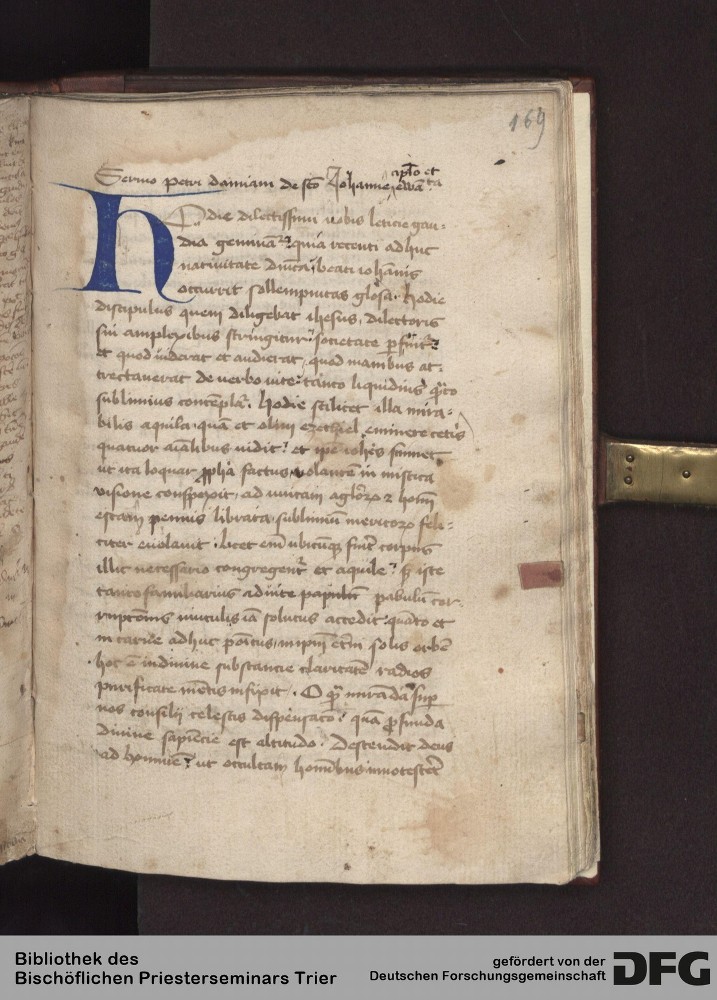 169
Sermo petri damiani de scō Iohanne aplō et
ewāta
HOdie dilectissimi nobis leticie gau-
dia geminātᵉ quia recenti adhuc
nativitate dn̄ica beati iohānis
occurrit sollempnitas glōsa. Hodie
discipulus quem diligebat ihesus, dilectoris
sui amplexibus stringitur societate pfruitᵉ
et quod viderat et audierat, quod manibus at-
trectaverat de verbo vite tanto liquidius qᵃto
sublimius contēplatᵉ. Hodie scilicet illa mira-
bilis aquila quā et olim ezechiel eminere cetis
quatuor aīalibus vidit et ipē iohēs
ut ita loquar pphīa factus volantē in mistica
visione conspexit, ad vivitatem aglōrꝫ
pennis librata sublimiū meritoꝝ feli-
citer evolavit. licet em̄ ubicūqꝫ fuit corpus
illic necessario congregentᵉ et aquile sꝫ iste
tanto familiarius ad vite pabulū cor-
ruptōnis vinculis iā solutus accedit quāto et
in carne adhuc positus, in ipm̄ etm̄ solis orbē
hoc ē in divine substancie claritatē radios
purificate mētis infixit. O qᵐ mirāda sup
nos consilii celestis dispensacō quā pfunda
divine sapiēcie est altitudo. Descendit deus
ad hominē ut occultam hominibus innotesceret
Bibliothek des
Bischöflichen Priesterseminars Trier
gefördert von der
Deutschen Forschungsgemeinschaft
DFG